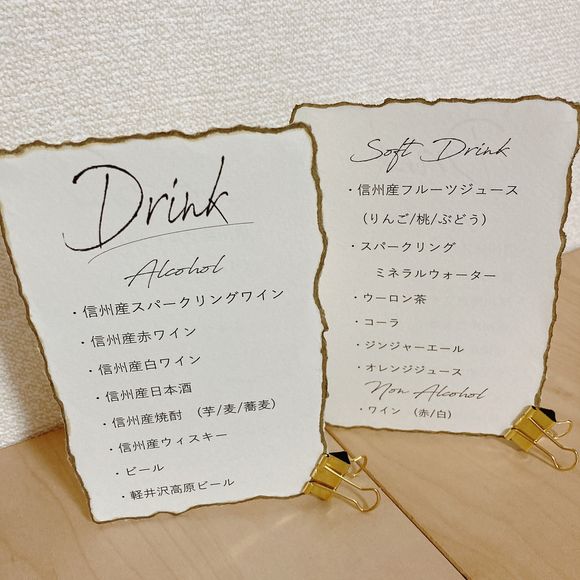 Drink
Alcohol
・信州産スパークリングワイン
・信州産赤ワイン
・信州産白ワイン
・信州産日本酒
・信州産焼酎 (芋/麦/蕎麦)
・信州産ウィスキー
・ビール
・軽井沢高原ビール
Soft Drink
・信州産フルーツジュース
(りんご/桃/ぶどう)
・スパークリング
ミネラルウォーター
・ウーロン茶
・コーラ
・ジンジャーエール
・オレンジジュース
Non Alcohol
・ワイン (赤/白)